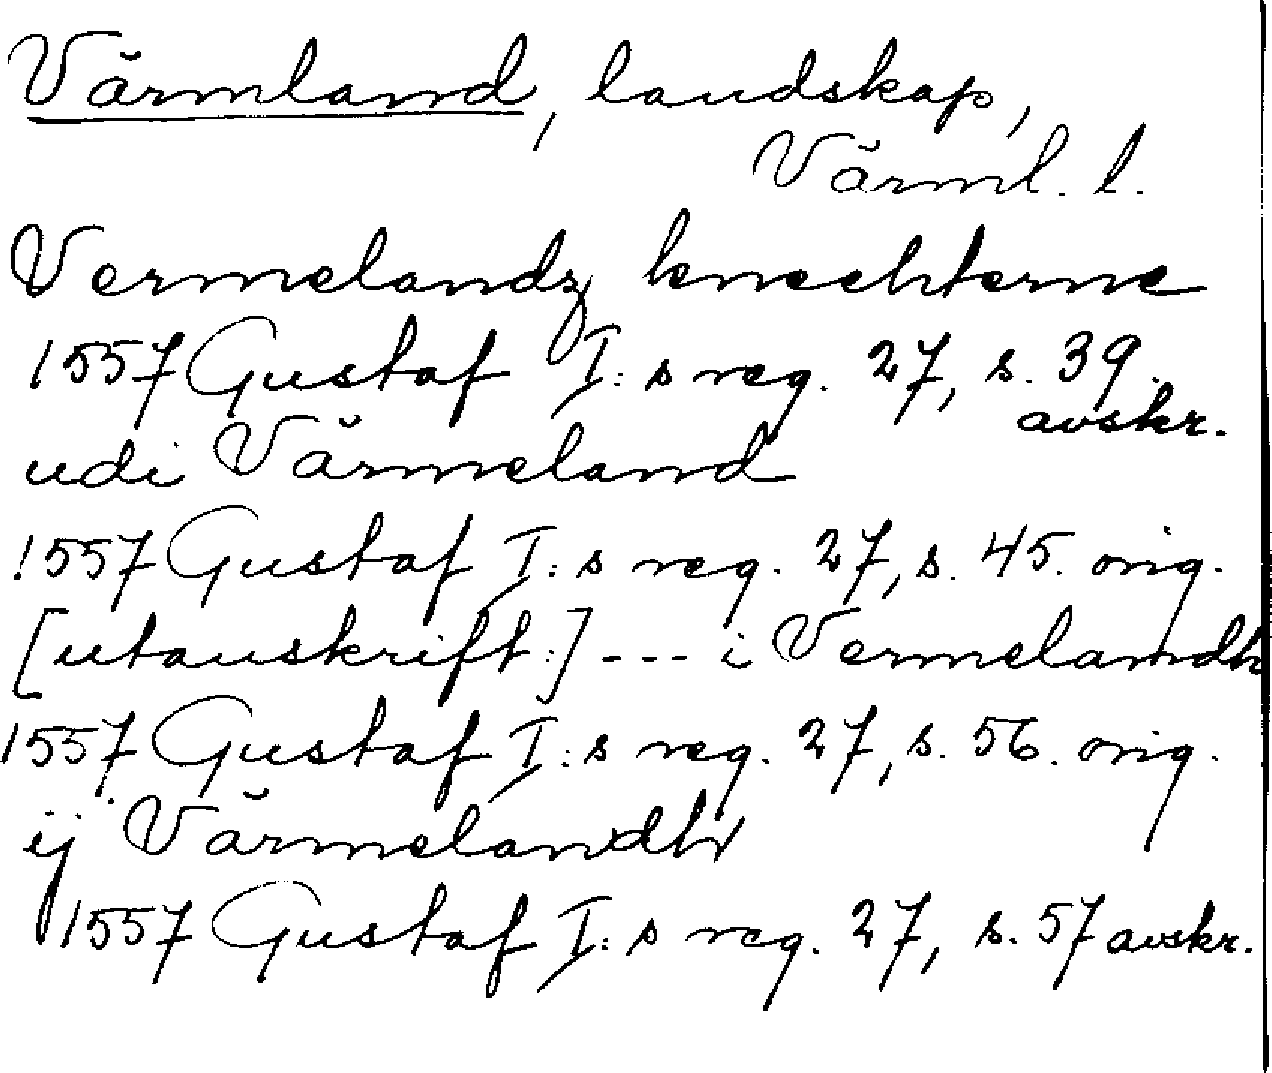 Värmland, landskap,
Värml. l.
Vermelandz knechterne
1557 Gustaf I:s reg. 27, s. 39.
avskr.
udi Värmeland
1557 Gustaf I:s reg. 27, s. 45. orig.
[utanskrift:] --- i Vermelamdh
1557 Gustaf I:s reg. 27, s. 56. orig.
ij Värmelandh
1557 Gustaf I:s reg. 27, s. 57 avskr.